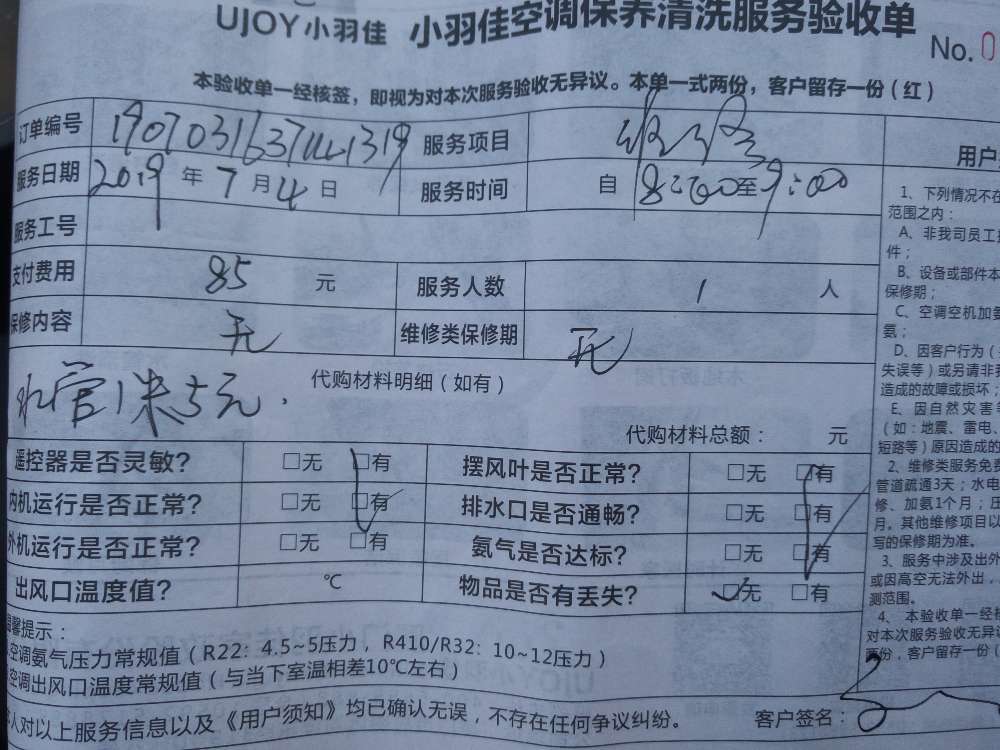 UJOY小羽佳 小羽佳空调保养清洗服务验收单
No. 0
本验收单一经核签，即视为对本次服务验收无异议。本单一式两份，客户留存一份（红）
订单编号 服务项目
服务日期 2019 年 7 月 4 日 服务时间 自 8:00 至 9:00
服务工号
支付费用 85 元 服务人数 1 人
保修内容 无 维修类保修期 无
代购材料明细（如有）
水管1米5元.
代购材料总额： 元
遥控器是否灵敏? □无 □有 摆风叶是否正常? □无 □有
内机运行是否正常? □无 □有 排水口是否通畅? □无 □有
外机运行是否正常? □无 □有 氨气是否达标? □无 □有
出风口温度值? ℃ 物品是否有丢失? □无 □有
温馨提示：
空调氨气压力常规值（R22: 4.5~5压力，R410/R32: 10~12压力）
空调出风口温度常规值（与当下室温相差10℃左右）
本人对以上服务信息以及《用户须知》均已确认无误，不存在任何争议纠纷。 客户签名：
用户
1、下列情况不在
范围之内：
A、非我司员工
件；
B、设备或部件本
保修期；
C、空调空机加氨
氨；
D、因客户行为（
失误等）或另请非我
造成的故障或损坏；
E、因自然灾害等
（如:地震、雷电、
短路等）原因造成的
2、维修类服务免费
管道疏通3天；水电
修、加氨1个月；压
月。其他维修项目以
写的保修期为准。
3、服务中涉及出外
或因高空无法外出，
测范围。
4、本验收单一经核
对本次服务验收无异议
两份，客户留存一份（